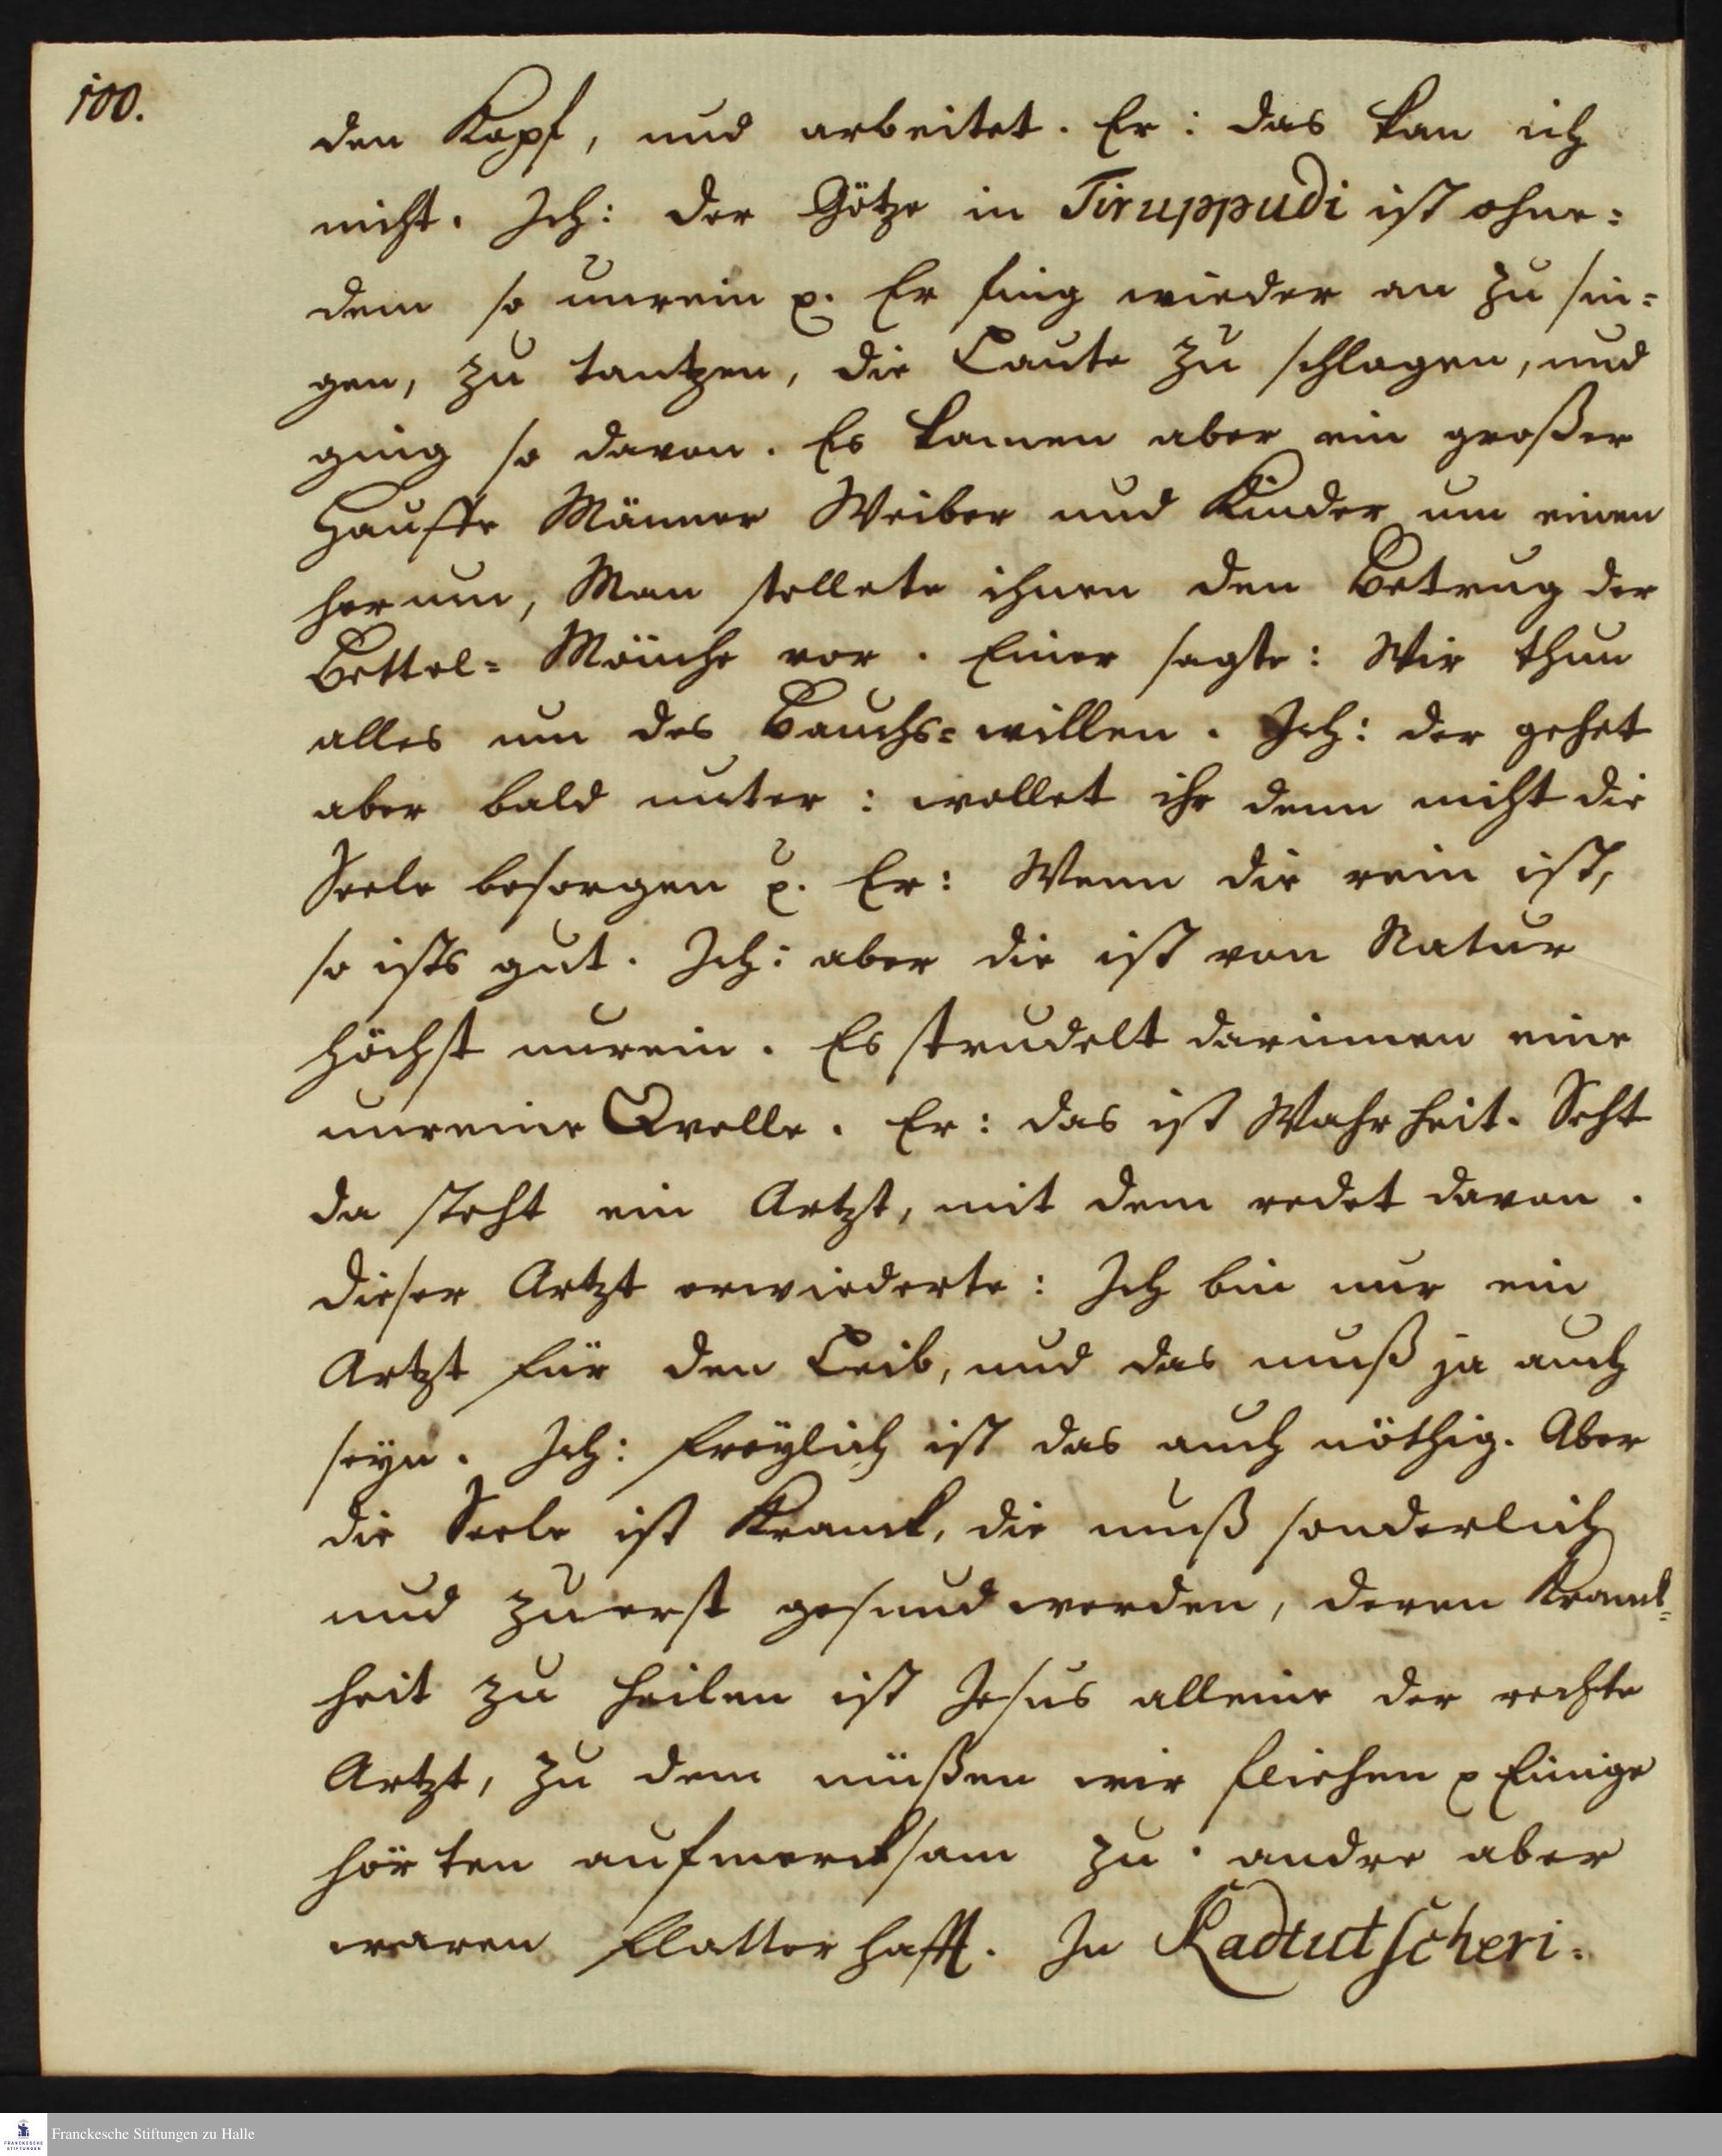 100.
den Kopf, und arbeitet. Er: das kan ich
nicht. Ich: der Götze in Tiruppudi ist ohne=
dem so unrein p. Er fing wieder an zu sin=
gen, zu tantzen, die Laute zu schlagen, und
ging so davon. Es kamen aber ein großer
Hauffe Männer Weiber und Kinder um einen
herum, Man stellete ihnen den Betrug der
Bettel= Mönche vor. Einer sagte: Wir thun
alles um des Bauchs= willen. Ich: der gehet
aber bald unter: wollet ihr denn nicht die
Seele besorgen p. Er: Wenn die rein ist,
so ists gut. Ich: aber die ist von Natur
höchst unrein. Es strudelt darinnen eine
unreine Qvelle. Er: das ist Wahrheit. Seht
da steht ein Artzt, mit dem redet davon.
Dieser Artzt erwiederte: Ich bin nur ein
Artzt für den Leib, und das muß ja auch
seyn. Ich: freylich ist das auch nöthig. Aber
die Seele ist Kranck, die muß sonderlich
und zuerst gesund werden, deren Kranck=
heit zu heilen ist Jesus alleine der rechte
Artzt, zu dem müßen wir fliehen p Einige
hörten aufmercksam zu. andre aber
waren flatterhafft. In Kadtutscheri=
Franckesche Stiftungen zu Halle
FRANCKESCHE
STIFTUNGEN